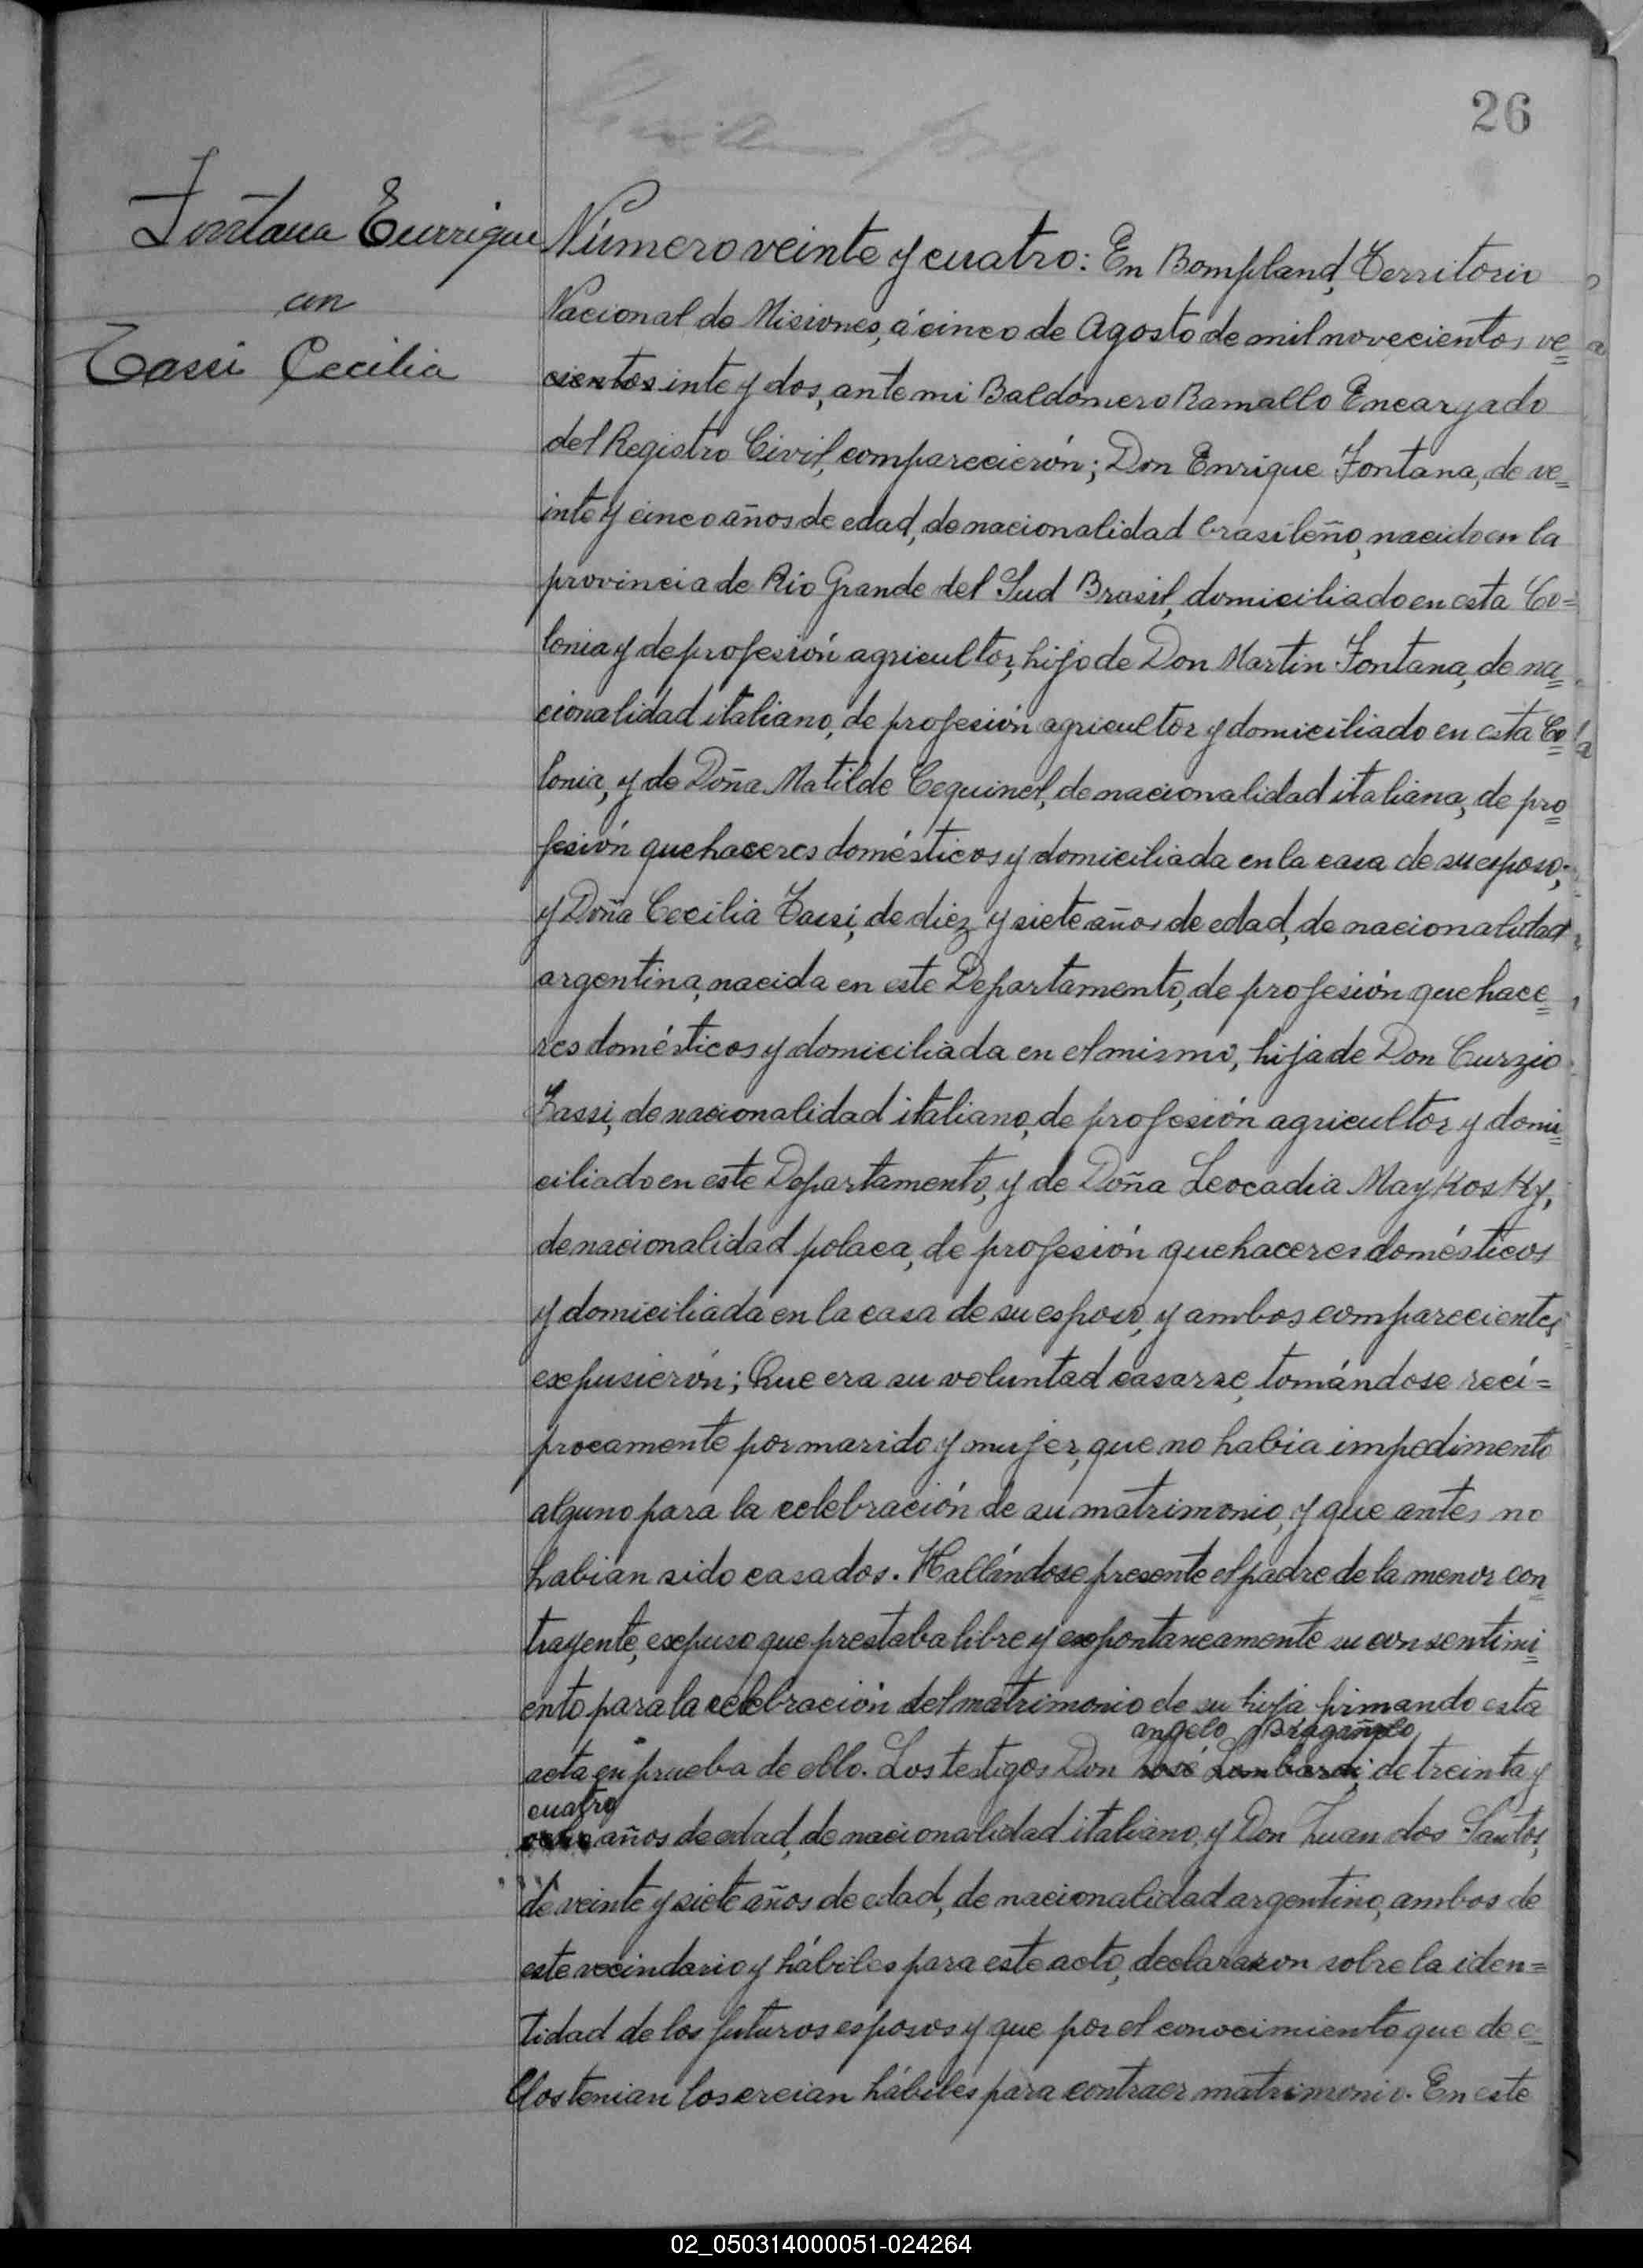 26
Fontana Enrrique
con
Tassi Cecilia
Número veinte y cuatro: En Bompland, Territorio
Nacional de Misiones, á cinco de Agosto de mil novecientos ve=
cientos inte y dos, ante mi Baldomero Ramallo Encargado
del Registro Civil, comparecierón; Don Enrique Fontana, de ve=
inte y cinco años de edad, de nacionalidad brasileño, nacido en la
provincia de Rio Grande del Sud Brasil, domiciliado en esta Co=
lonia y de profesión agricultor, hijo de Don Martin Fontana, de na=
cionalidad italiano, de profesión agricultor y domiciliado en esta Co=
lonia, y de Doña Matilde Cequinel, de nacionalidad italiana, de pro=
fesión quehaceres domésticos y domiciliada en la casa de su esposo;
y Doña Cecilia Tassi, de diez y siete años de edad, de nacionalidad
argentina, nacida en este Departamento, de profesión quehace=
res domésticos y domiciliada en el mismo, hija de Don Curzio
Tassi, de nacionalidad italiano, de profesión agricultor y domi=
ciliado en este Departamento, y de Doña Leocadia Maykosky,
de nacionalidad polaca, de profesión quehaceres domésticos
y domiciliada en la casa de su esposo, y ambos comparecientes
expusierón; Que era su voluntad casarse, tomándose recí=
procamente por marido y mujer, que no habia impedimento
alguno para la celebración de su matrimonio, y que antes no
habian sido casados. Hallándose presente el padre de la menor con=
trayente, expuso que prestaba libre y expontaneamente su consentimi=
ento para la celebración del matrimonio de su hija firmando esta
angelo Bragañolo
acta en prueba de ello. Los testigos Don José Lombardi, de treinta y
cuatro
años de edad, de nacionalidad italiano, y Don Juan dos Santos,
de veinte y siete años de edad, de nacionalidad argentino, ambos de
este vecindario y hábiles para este acto, declararon sobre la iden=
tidad de los futuros esposos y que por el conocimiento que de e=
llos tenian los creian hábiles para contraer matrimonio. En este
02_050314000051-024264